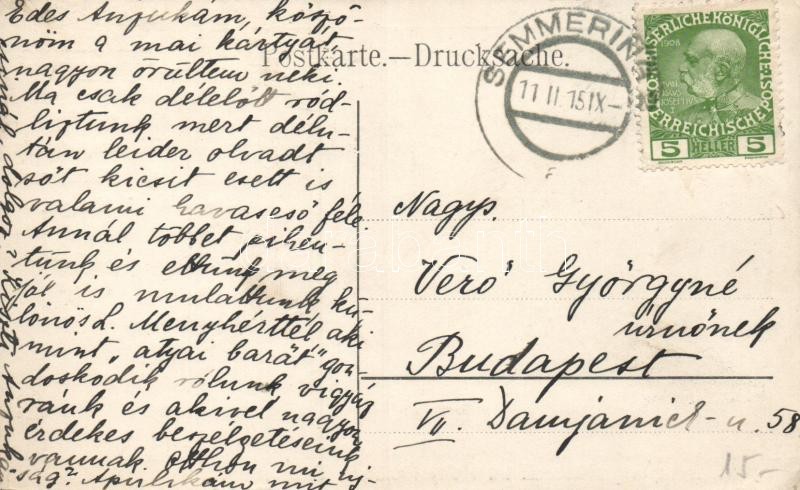 Édes Anyukám, köszö-
nöm a mai kártyát
nagyon örültem neki.
Ma csak délelőtt ród-
liztunk mert délu-
tán leider olvadt
sőt kicsit esett is
valami havaseső féle
Annál többet pihen-
tünk és ettünk meg
jól is mulattunk kü-
lönös L. Menyhérttel aki
mint "atyai barát" gon-
doskodik rólunk vigyáz
ránk és akivel nagyon
érdekes beszélgetéseink
vannak. Otthon mi új-
ság? Apulikám mit
Postkarte.—Drucksache.
SEMMERING
11 II 15 IX–
KAISERLICHE KÖNIGLICHE
ÖSTERREICHISCHE
1908
5 HELLER 5
Nagys.
Verő Györgyné
úrnőnek
Budapest
VII. Damjanich-u. 58
15.-